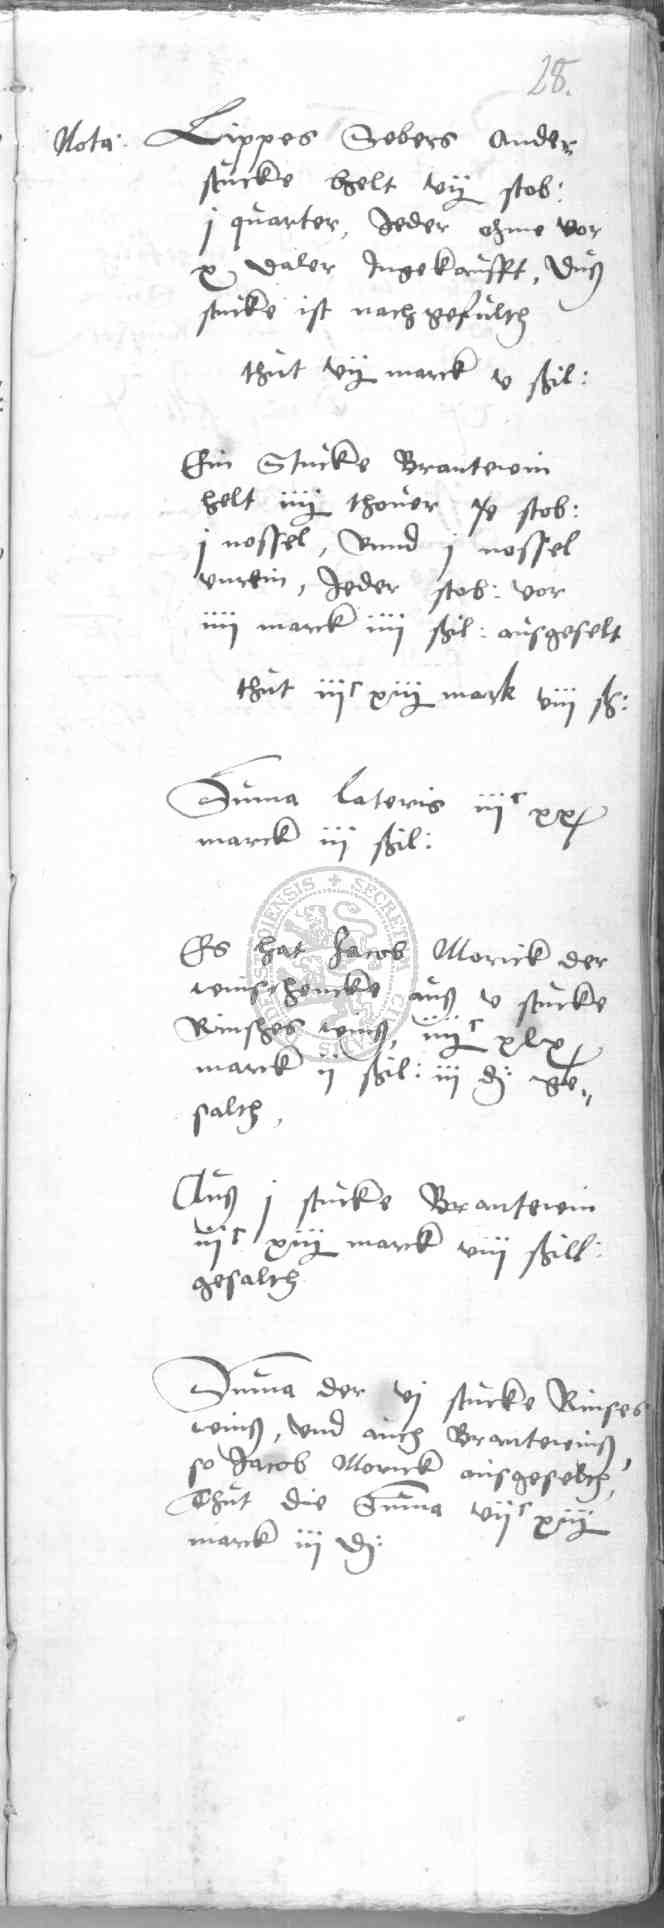 28.
Nota. Lippes Sebers ander
stucke helt vij stob:
j quarter, Jeder ohme vor
x daler Ingekaufft, Duß
stucke ist nachgefulth
thut vij marck v ßil:
Ein Stucke Brantewin
helt iiij thover stob:
j nossel, vnnd j nossel
vnrein, Jeder stob: vor
iiij marck iiij ßil: ausgeselt
thut iijc xiij mark viij ß:
Suma lateris iijc xx
marck iij ßil:
Es hat Jacob Morick der
winschencke auß v stucke
Rinsches winß, iiijc
marck ij ßil: iij d: ge„
salth,
Auß j stucke Brantewin
iijc xiij marck viij ßill:
gesalth
Suma der vj stucke Rinses
winß, vnd auch Brantewinß,
so Jacob Morick ausgeselth,
Thut die Suma vijc xiij
marck iij d: